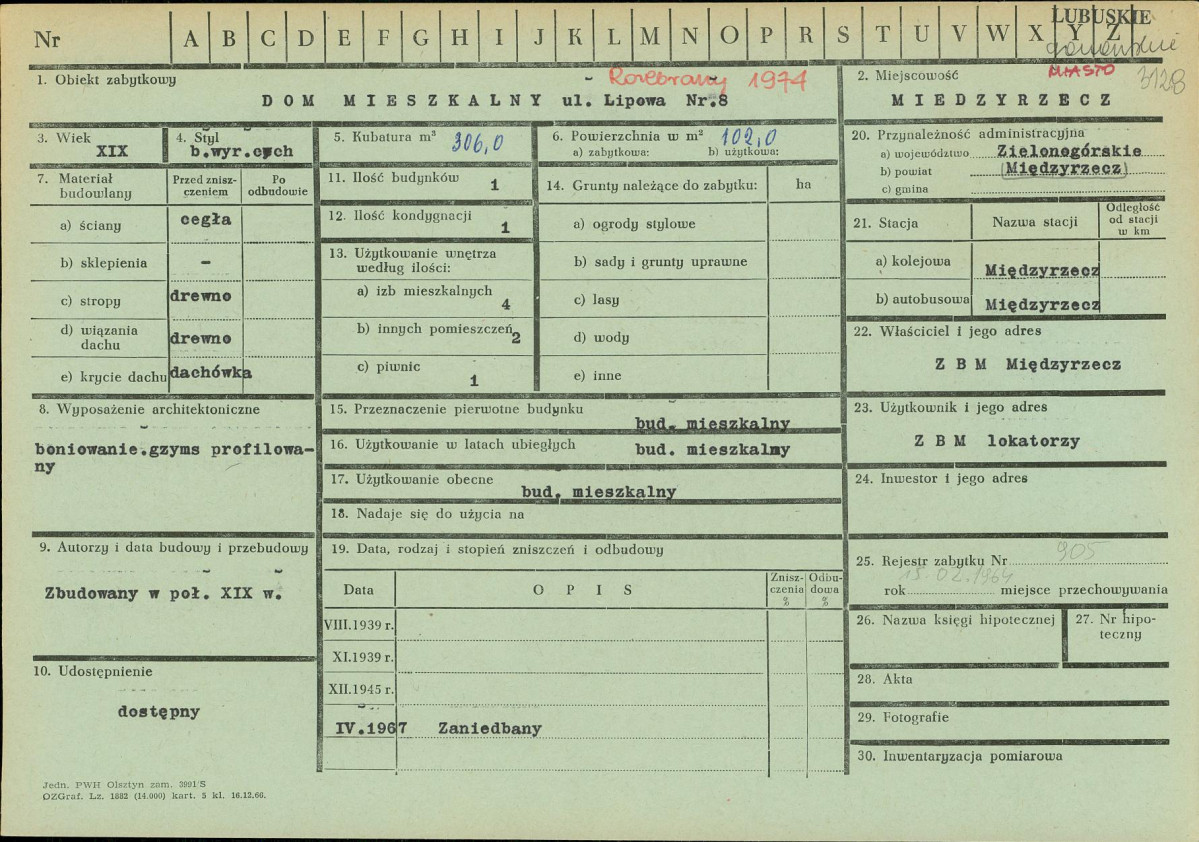 LUBUSKIE
Nr A B C D E F G H I J K L M N O P R S T U V W X Y Z
1. Obiekt zabytkowy
Rozebrany 1974
DOM MIESZKALNY ul. Lipowa Nr.8
2. Miejscowość
MIASTO
3128
MIEDZYRZECZ
3. Wiek
XIX
4. Styl
b.wyr.cech
5. Kubatura m³ 306,0
6. Powierzchnia w m² 102,0
a) zabytkowa: b) użytkowa:
20. Przynależność administracyjna
a) województwo Zielonogórskie
b) powiat (Międzyrzecz)
c) gmina
7. Materiał budowlany
Przed znisz-
czeniem
Po
odbudowie
a) ściany cegła
b) sklepienia -
c) stropy drewno
d) wiązania
dachu drewno
e) krycie dachu dachówka
11. Ilość budynków 1
12. Ilość kondygnacji 1
13. Użytkowanie wnętrza
według ilości:
a) izb mieszkalnych 4
b) innych pomieszczeń 2
c) piwnic 1
14. Grunty należące do zabytku: ha
a) ogrody stylowe
b) sady i grunty uprawne
c) lasy
d) wody
e) inne
21. Stacja Nazwa stacji
Odległość
od stacji
w km
a) kolejowa Międzyrzecz
b) autobusowa Międzyrzecz
22. Właściciel i jego adres
Z B M Międzyrzecz
8. Wyposażenie architektoniczne
boniowanie.gzyms profilowa-
ny
15. Przeznaczenie pierwotne budynku
bud. mieszkalny
16. Użytkowanie w latach ubiegłych bud. mieszkalny
17. Użytkowanie obecne
bud. mieszkalny
18. Nadaje się do użycia na
23. Użytkownik i jego adres
Z B M lokatorzy
24. Inwestor i jego adres
9. Autorzy i data budowy i przebudowy
Zbudowany w poł. XIX w.
19. Data, rodzaj i stopień zniszczeń i odbudowy
Data O P I S
Znisz-
czenia
%
Odbu-
dowa
%
VIII.1939 r.
XI.1939 r.
XII.1945 r.
IV.1967 Zaniedbany
25. Rejestr zabytku Nr 905
15.02.1964
rok miejsce przechowywania
26. Nazwa księgi hipotecznej
27. Nr hipo-
teczny
10. Udostępnienie
dostępny
28. Akta
29. Fotografie
30. Inwentaryzacja pomiarowa
Jedn. PWH Olsztyn zam. 3991/S
OZGraf. Lz. 1882 (14.000) kart. 5 kl. 16.12.66.